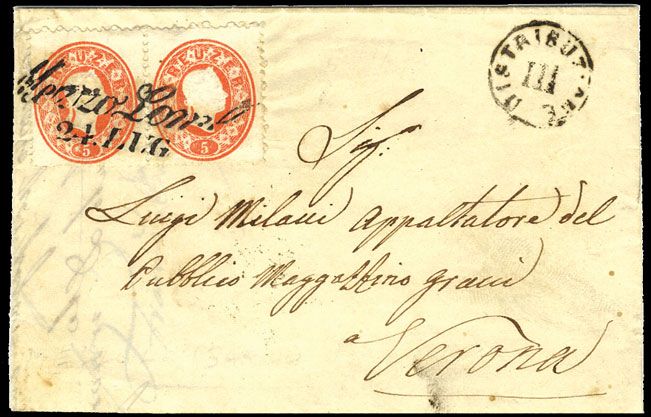 KREUZER KREUZER
5 5
Mezzo Lomb
24. LUG
DISTRIBUZ
III
Sigr
Luigi Milani Appaltatore del
Pubblico Maggazzino grani
a
Verona